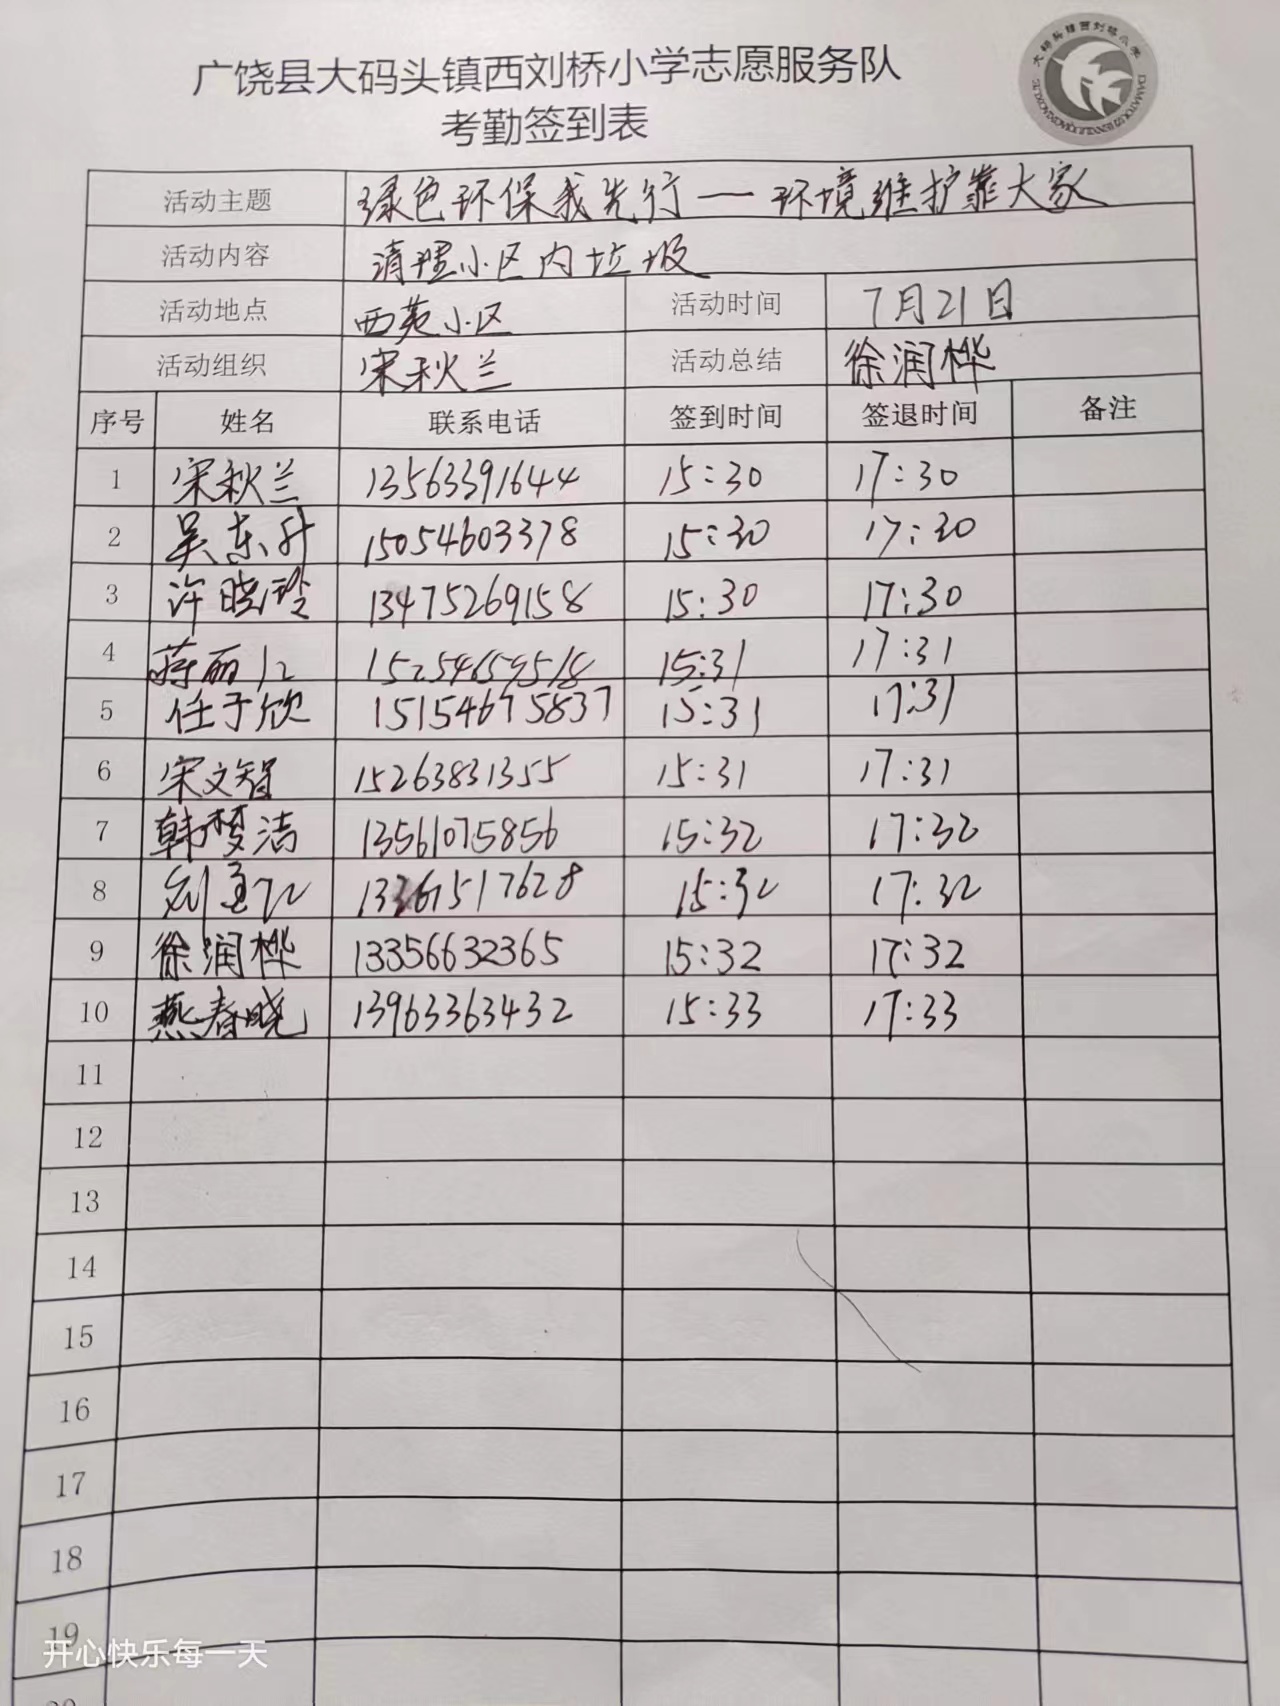 广饶县大码头镇西刘桥小学志愿服务队
考勤签到表
活动主题 绿色环保我先行一环境维护靠大家
活动内容 清理小区内垃圾
活动地点 西苑小区 活动时间 7月21日
活动组织 宋秋兰 活动总结 徐润桦
序号 姓名 联系电话 签到时间 签退时间 备注
1 宋秋兰 13563391644 15:30 17:30
2 吴东升 15054603378 15:30 17:30
3 许晓玲 13475269158 15:30 17:30
4 蒋丽 15:31 17:31
5 任于欣 15154675837 15:31 17:31
6 宋文智 15263831355 15:31 17:31
7 韩梦洁 13561075856 15:32 17:32
8 15:32 17:32
9 徐润桦 13356632365 15:32 17:32
10 燕春晓 13963363432 15:33 17:33
11
12
13
14
15
16
17
18
19
开心快乐每一天